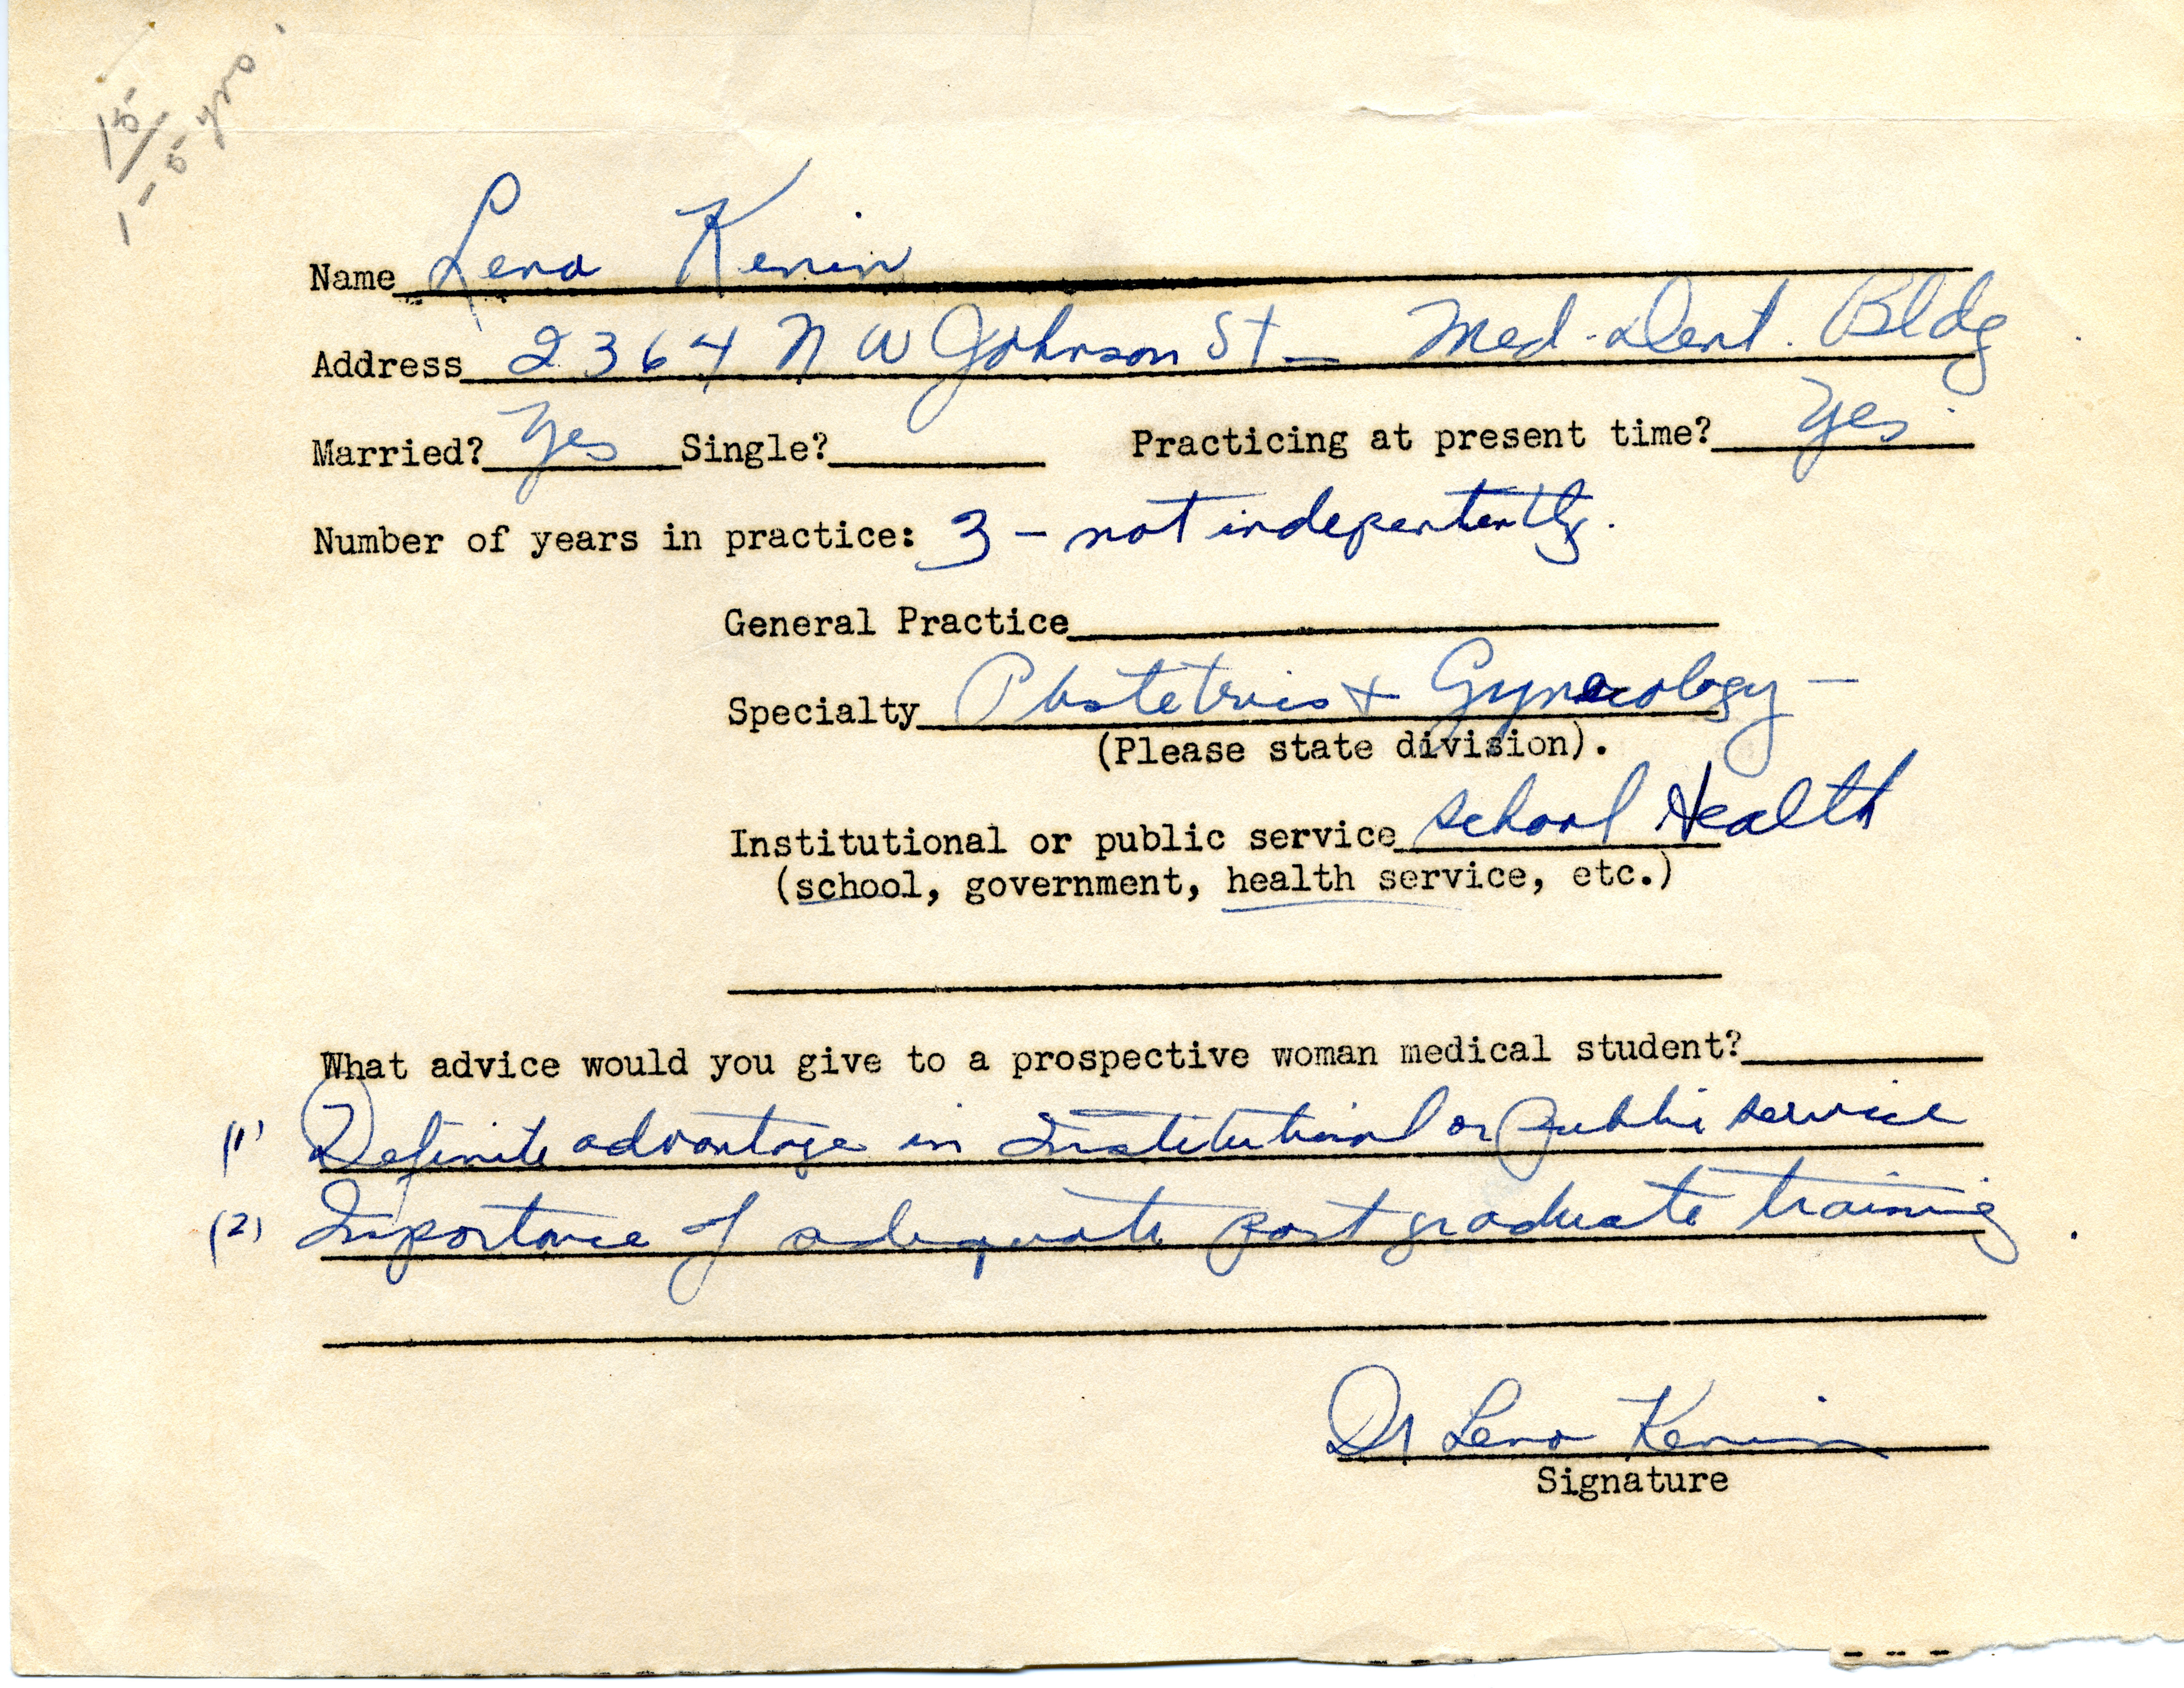 15
1-5 yrs.
Name Lena Kenin
Address 2364 N W Johnson St - Med. Dent. Bldg
Married? Yes Single? Practicing at present time? Yes
Number of years in practice: 3 - not indepentently.
General Practice
Specialty Obstetrics + Gynecology -
(Please state division).
Institutional or public service school Health
(school, government, health service, etc.)
What advice would you give to a prospective woman medical student?
(1) Definite advantage in Institutional or Public service
(2) Importance of adequate post graduate training.
Dr Lena Kenin
Signature